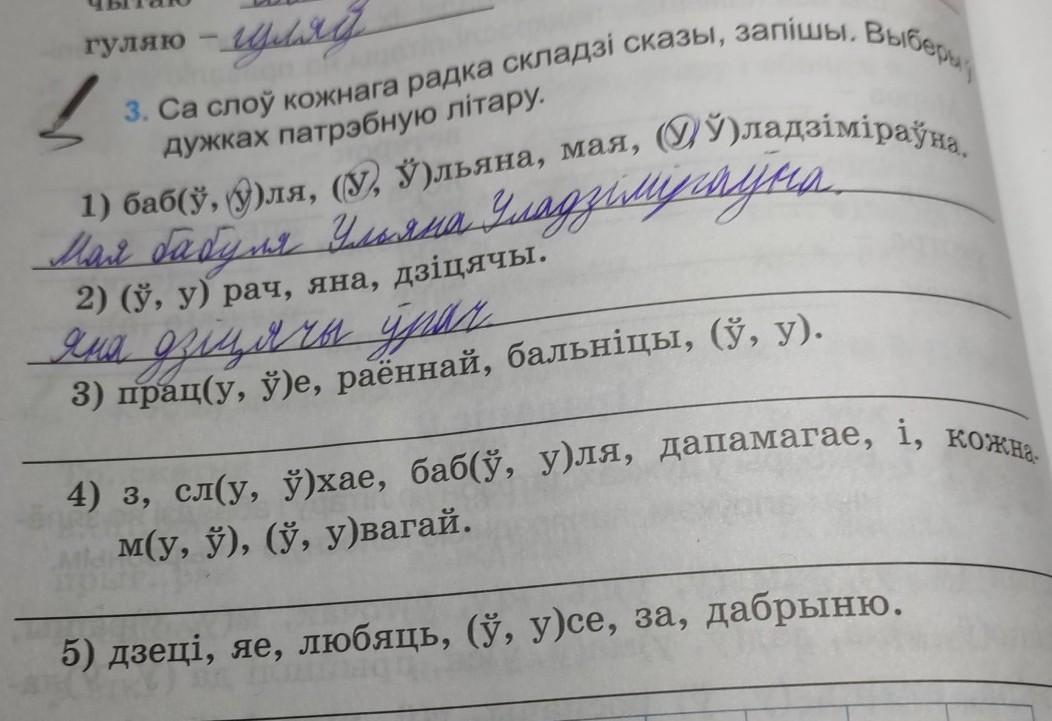 гуляю – гуляў
3. Са слоў кожнага радка складзі сказы, запішы. Выберы ў
дужках патрэбную літару.
1) баб(ў, у)ля, (У, Ў)льяна, мая, (У, Ў)ладзіміраўна.
Мая бабуля Ульяна Уладзіміраўна.
2) (ў, у) рач, яна, дзіцячы.
Яна дзіцячы ўрач.
3) прац(у, ў)е, раённай, бальніцы, (ў, у).
4) з, сл(у, ў)хае, баб(ў, у)ля, дапамагае, і, кожна-
м(у, ў), (ў, у)вагай.
5) дзеці, яе, любяць, (ў, у)се, за, дабрыню.